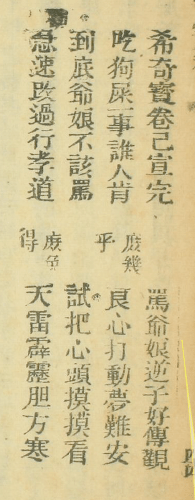 希奇寶卷已宣完
罵爺娘逆子好傳觀
吃狗屎事誰人肯
良心打動夢難安
到底爺娘不該罵
試把心頭摸摸看
急速改過行孝道
天雷霹靂胆方寒
庶幾乎
庶免得